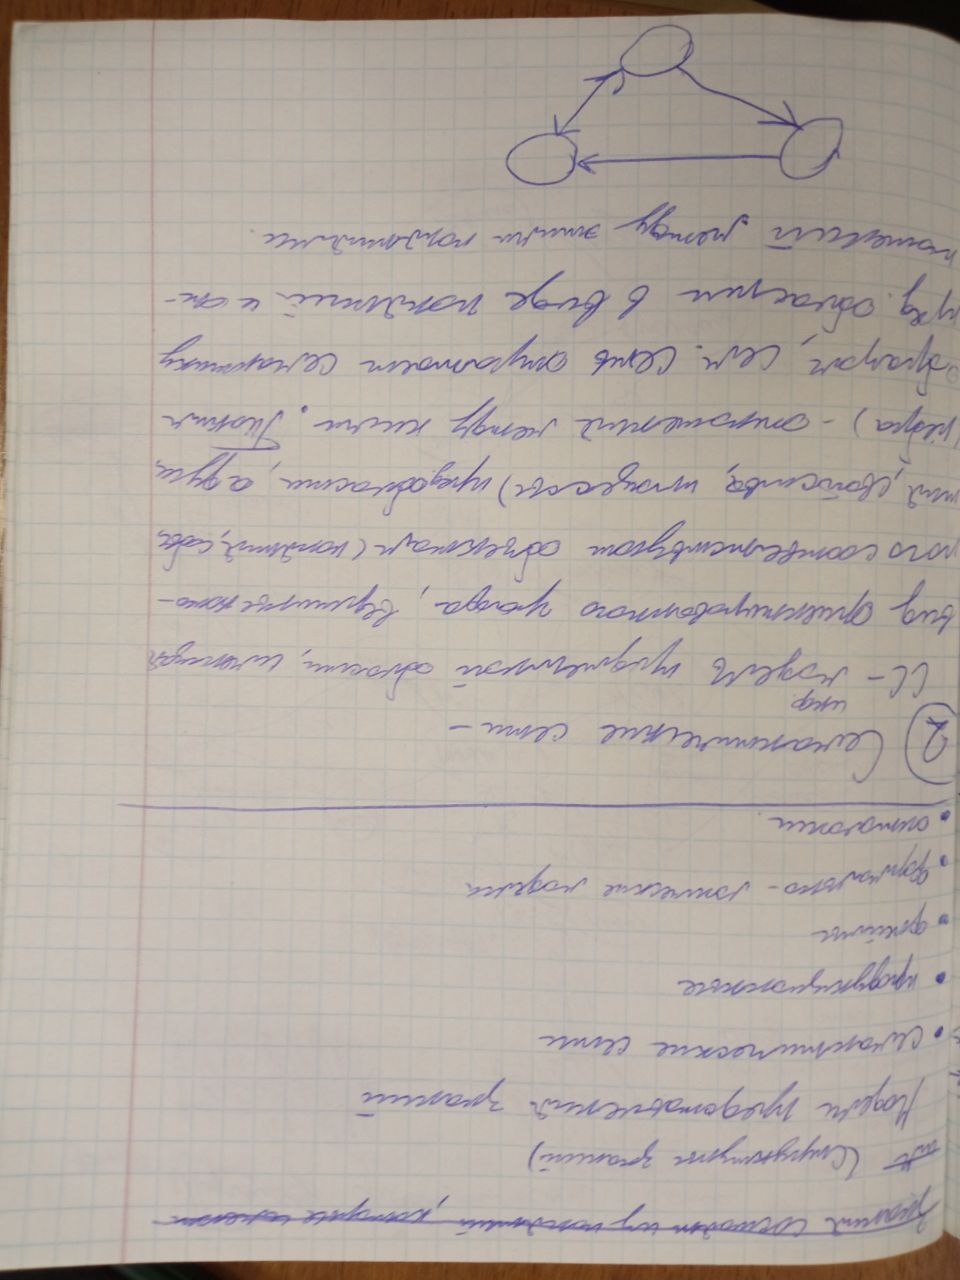 Знания состоят из понятий, которые имеют
(Структуры знаний)
Модели представления знаний
• семантические сети
• продукционные
• фреймы
• формально-логические модели
• онтологии.
2 Семантические сети –
инф.
СС – модель предметной области, имеющая
вид ориентированного графа, вершины кото-
рого соответствуют объектам (понятия, собы
тия, свойства, процессы) пред. области, а дуги
(рёбра) – отношения между ними. Таким
образом, сем. сеть отражает семантику
пред. области в виде понятий и от-
ношений между этими понятиями.